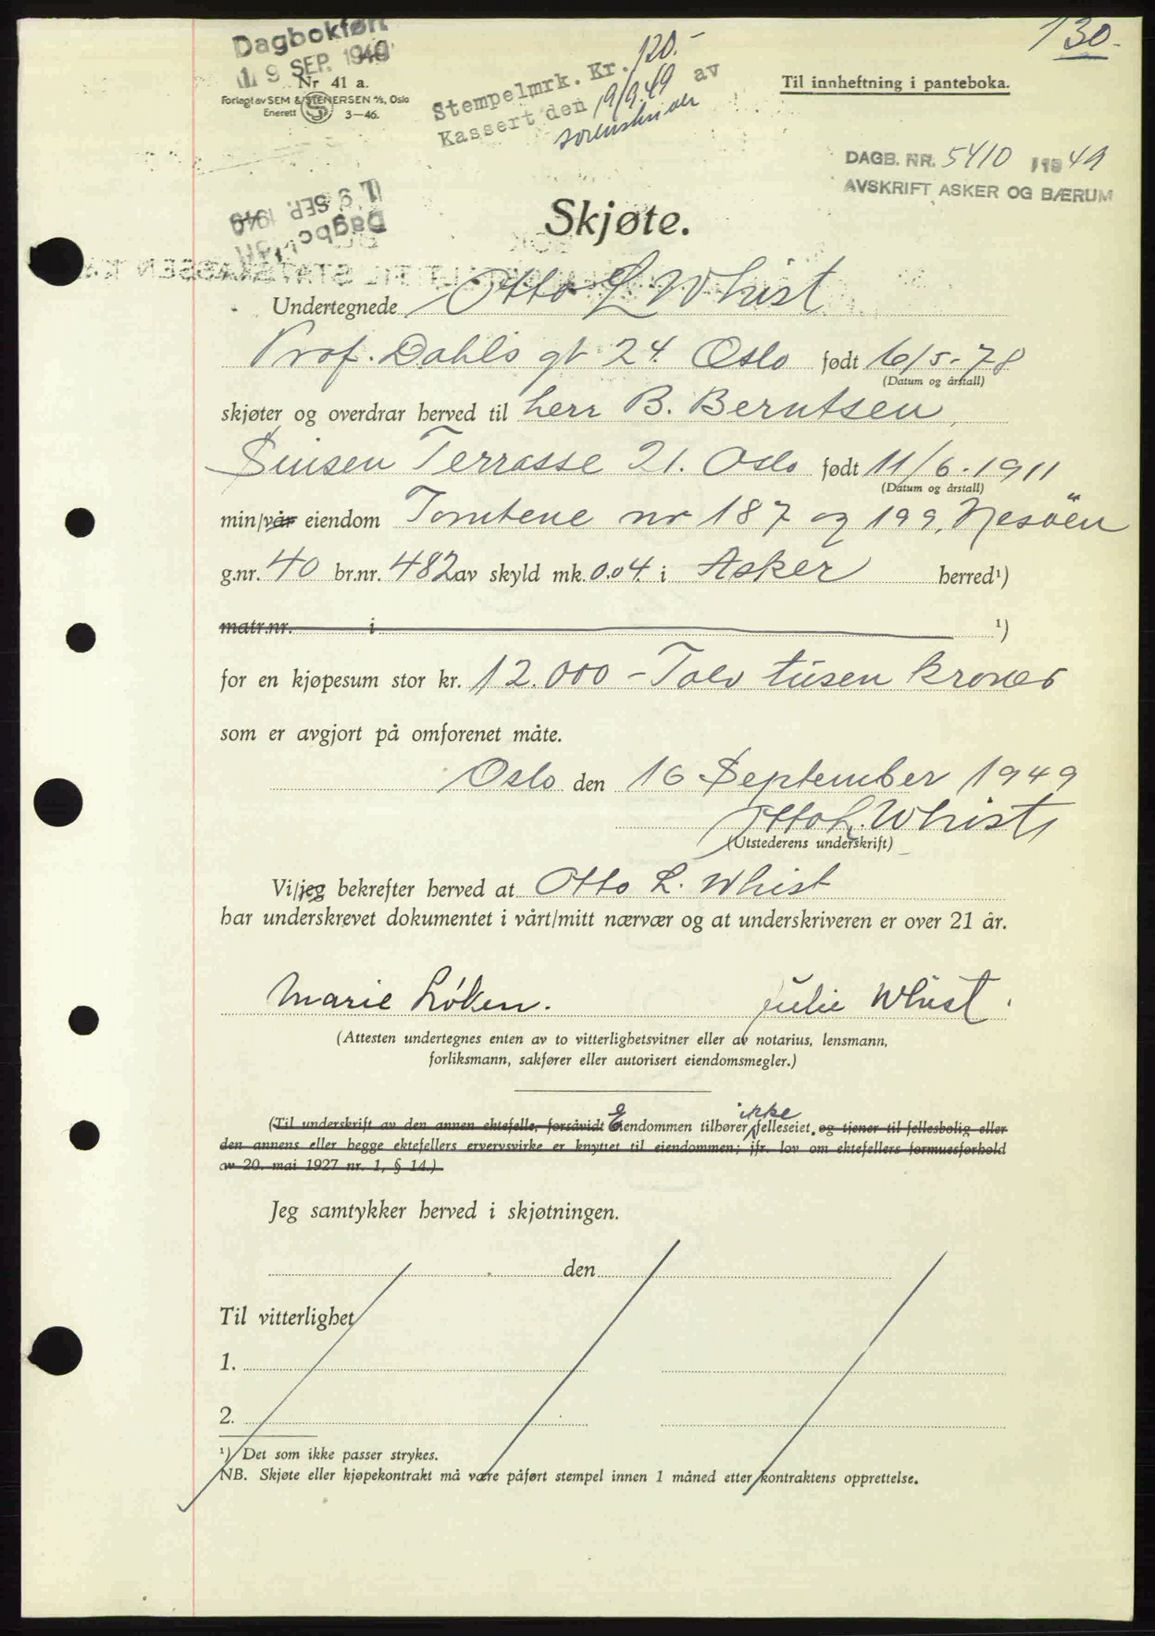 130.-
Dagbokført
19 SEP. 1949
Nr 41 a.
Forlagt av SEM & STENERSEN A/S, Oslo
Enerett S 3—46.
Stempelmrk. Kr. 120.-
Kassert den 19/9.49 av
sorenskriver
Til innheftning i panteboka.
DAGB. NR. 5410 1949
AVSKRIFT ASKER OG BÆRUM
19 SEP. 1949
Dagbokført
Skjøte.
Undertegnede Otto L Whist
Prof. Dahls gt 24. Oslo født 6/5-78
(Datum og årstall)
skjøter og overdrar herved til herr B. Berntsen,
Sinsen Terrasse 21. Oslo født 11/6-1911
(Datum og årstall)
min/vår eiendom Tomtene nr 187 og 199, Nesöen
g.nr. 40 br.nr. 482 av skyld mk. 0.04. i Asker herred¹)
matr.nr. i ¹)
for en kjøpesum stor kr. 12.000 - Tolv tusen kroner
som er avgjort på omforenet måte.
Oslo den 16 September 1949
Otto L. Whist
(Utstederens underskrift)
Vi/jeg bekrefter herved at Otto L. Whist
har underskrevet dokumentet i vårt/mitt nærvær og at underskriveren er over 21 år.
Marie Løken. Julie Whist.
(Attesten undertegnes enten av to vitterlighetsvitner eller av notarius, lensmann,
forliksmann, sakfører eller autorisert eiendomsmegler.)
(Til underskrift av den annen ektefelle, forsåvidt Eiendommen tilhører ikke felleseiet. og tjener til fellesbolig eller
den annens eller begge ektefellers ervervsvirke er knyttet til eiendommen; jfr. lov om ektefellers formuesforhold
av 20. mai 1927 nr. 1, § 14.)
Jeg samtykker herved i skjøtningen.
den
Til vitterlighet
1.
2.
¹) Det som ikke passer strykes.
NB. Skjøte eller kjøpekontrakt må være påført stempel innen 1 måned etter kontraktens opprettelse.